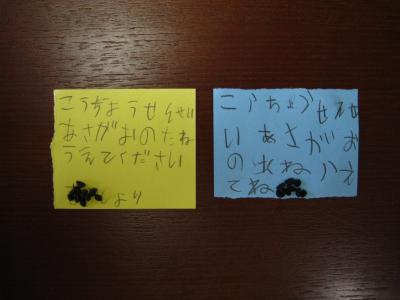 こうちょうせんせい
あさがおのたね
うえてください
より
こうちょうせんせ
いあさがお
のたねうえ
てね